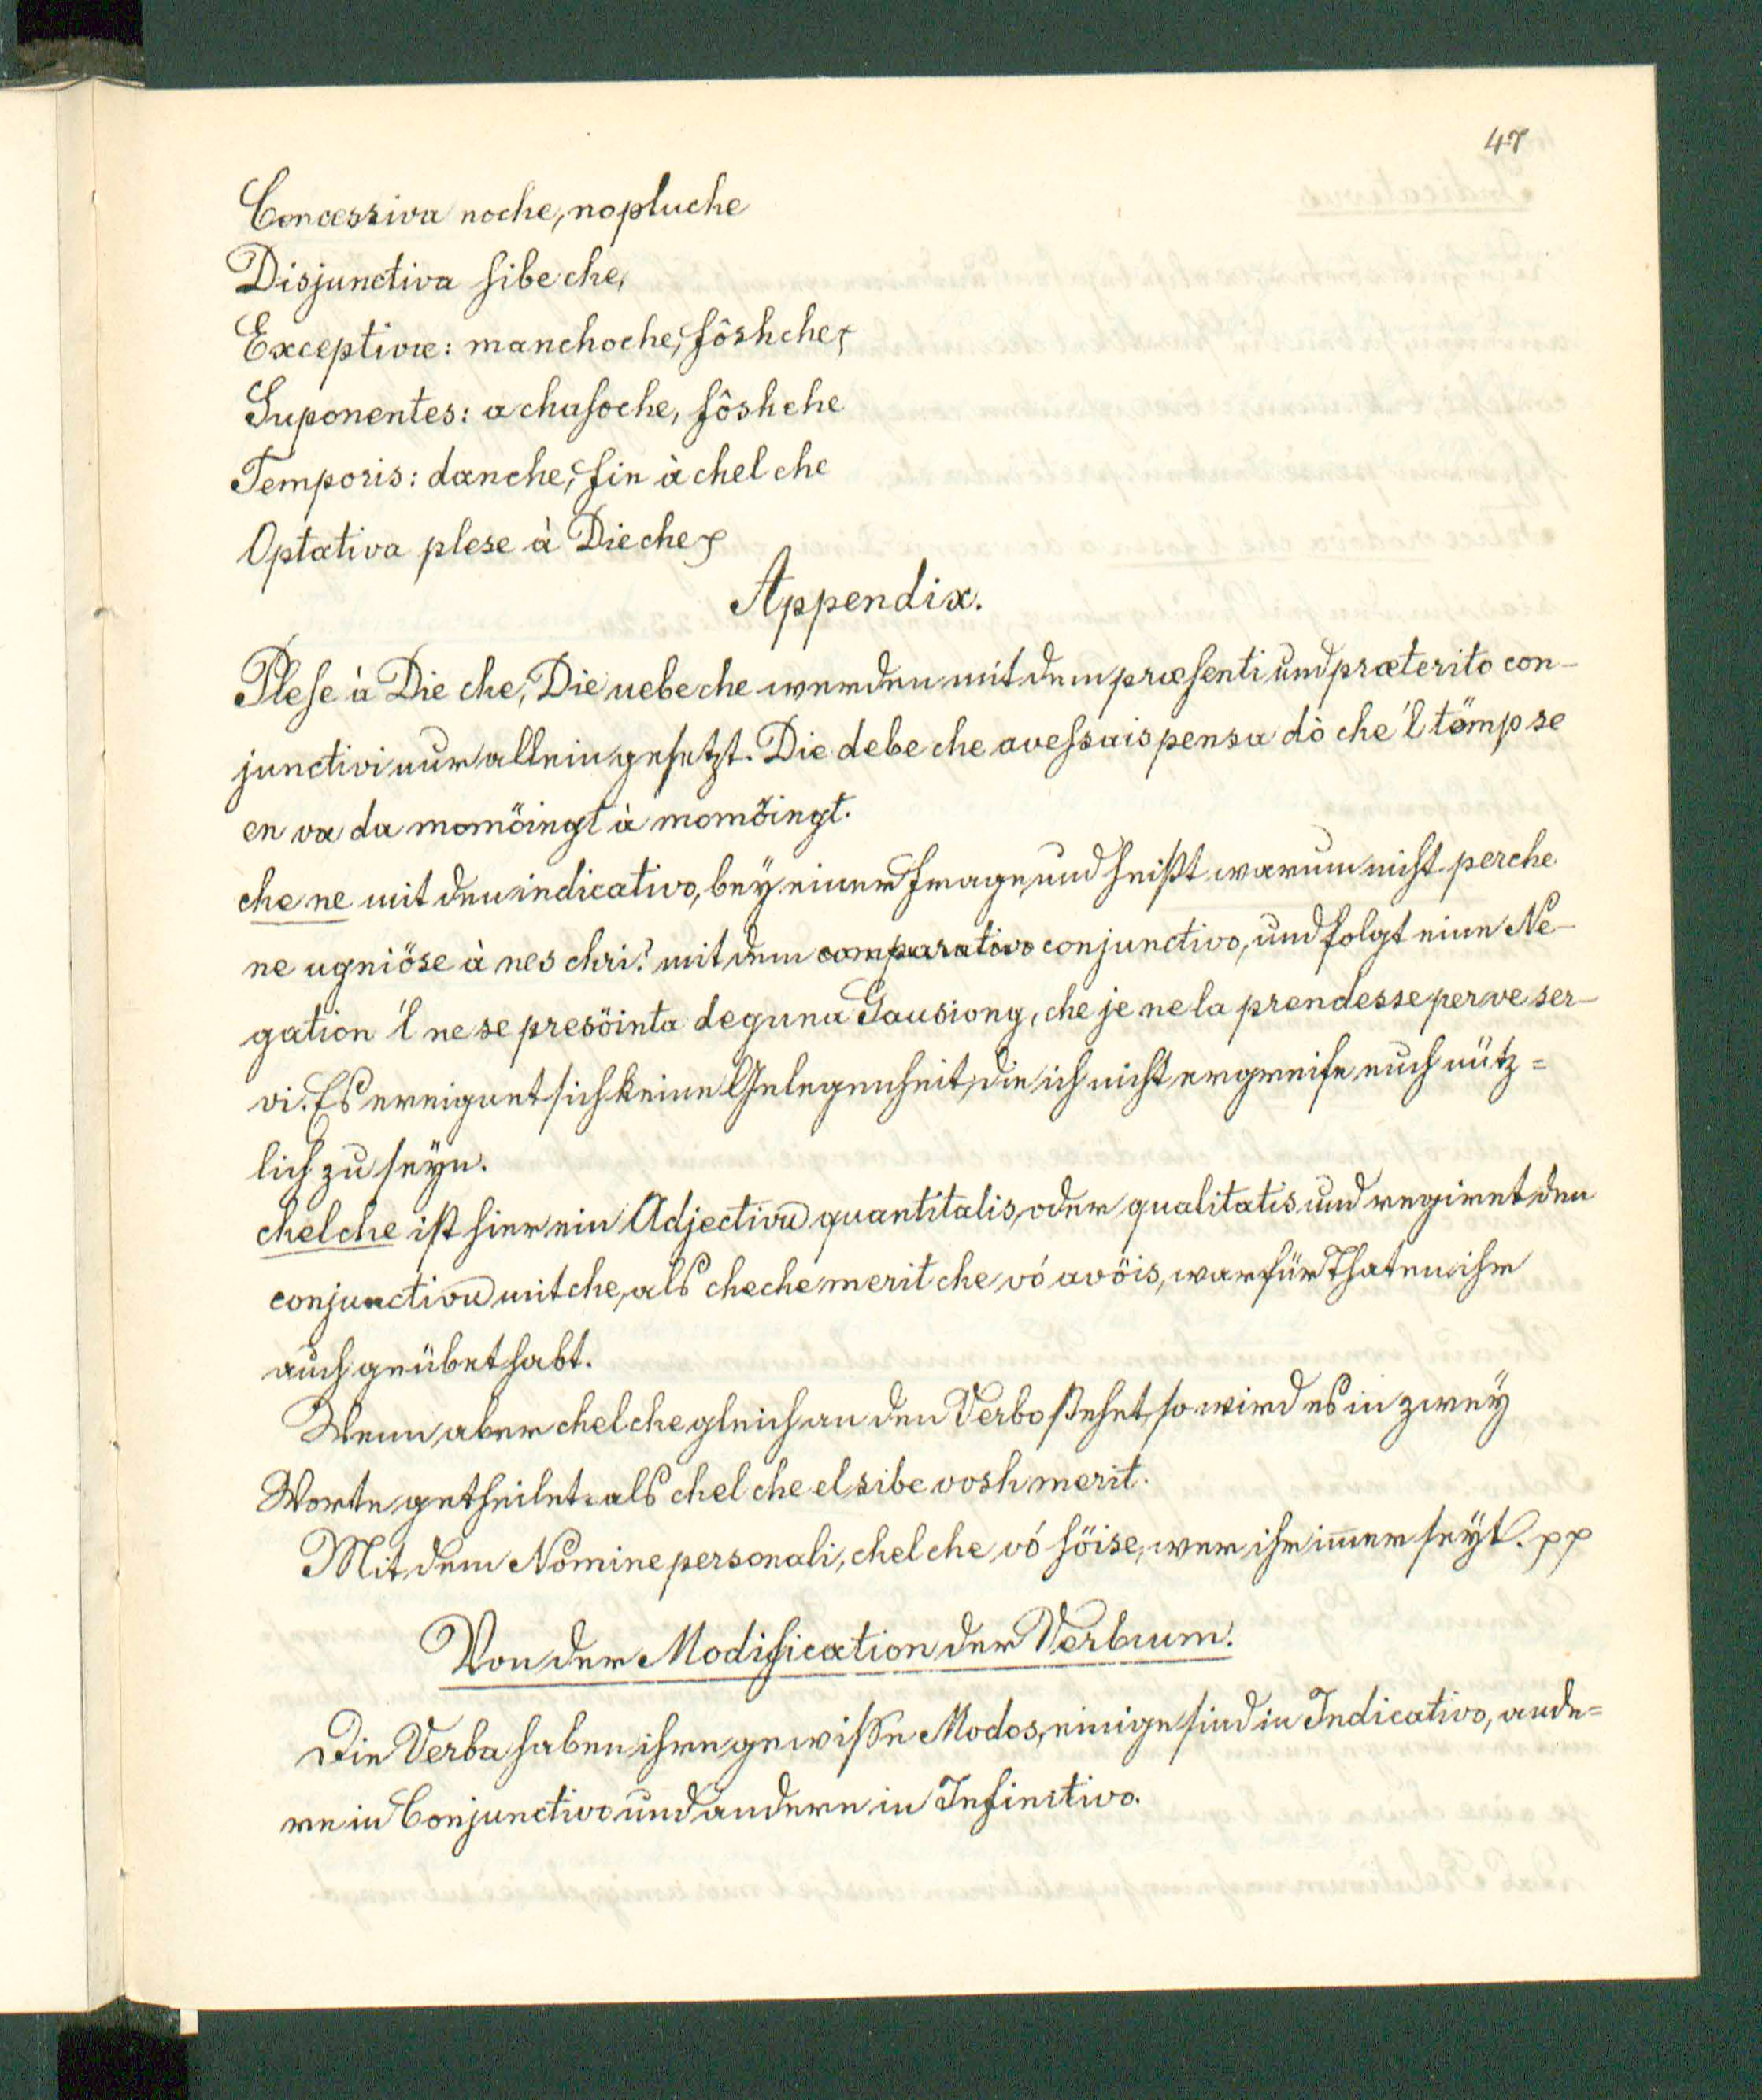 47
Concessiva noche, nopluche
Disjunctiva sibe che,
Exceptivæ: manchoche, fôshche,
Suponentes: a chasoche, fôshche
Temporis: danche, fin à chel che
Optativa plese à Die che
Appendix.
Plese à Die che, Die uebe che werden mit dem præsenti und præterito con-
junctivi nur allein gesetzt. Die debe che avessais pensa dò che 'l tömp se
en va da momöingt à momöingt.
che ne mit den indicativo, bey einer Frage, und heißt warum nicht perche
ne ugniöse à nes chri? mit dem comparativo conjunctivo, und folgt eine Ne-
gation 'l ne se presöinta deguna Gausiong, che je ne la prendesse per ve ser-
vi. Es ereignet sich keine Gelegenheit, die ich nicht ergreife euch nütz=
lich zu seyn.
chelche ist hier ein Adjectivū quantitatis, oder qualitatis und regiret den
conjunctivū mit che, als cheche merit che vó avöis, was für Thaten ihr
auch geübet habt.
Wenn aber chelche gleich an den Verbo stehet, so wird es in zwey
Worte getheilet. als chel che el sibe vosh merit.
Mit dem Nomine personali, chel che vó söise, wer ihr im̄er seyt. pp
Von der Modification der Verbum.
Die Verba haben ihre gewisse Modos, einige sind in Indicativo, ande=
re in Conjunctivo und andere in Infinitivo.